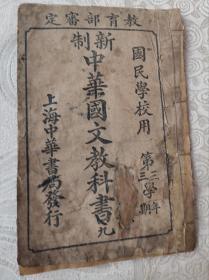 教育部審定
國民學校用
第三學年
第三學期
新制
中華國文教科書 九
上海中華書局發行